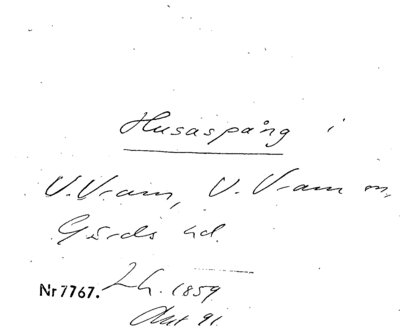 Husaspång i
V. Vram, V. Vram sn,
Gärds hd.
Nr 7767. Lh. 1859
Akt 91.